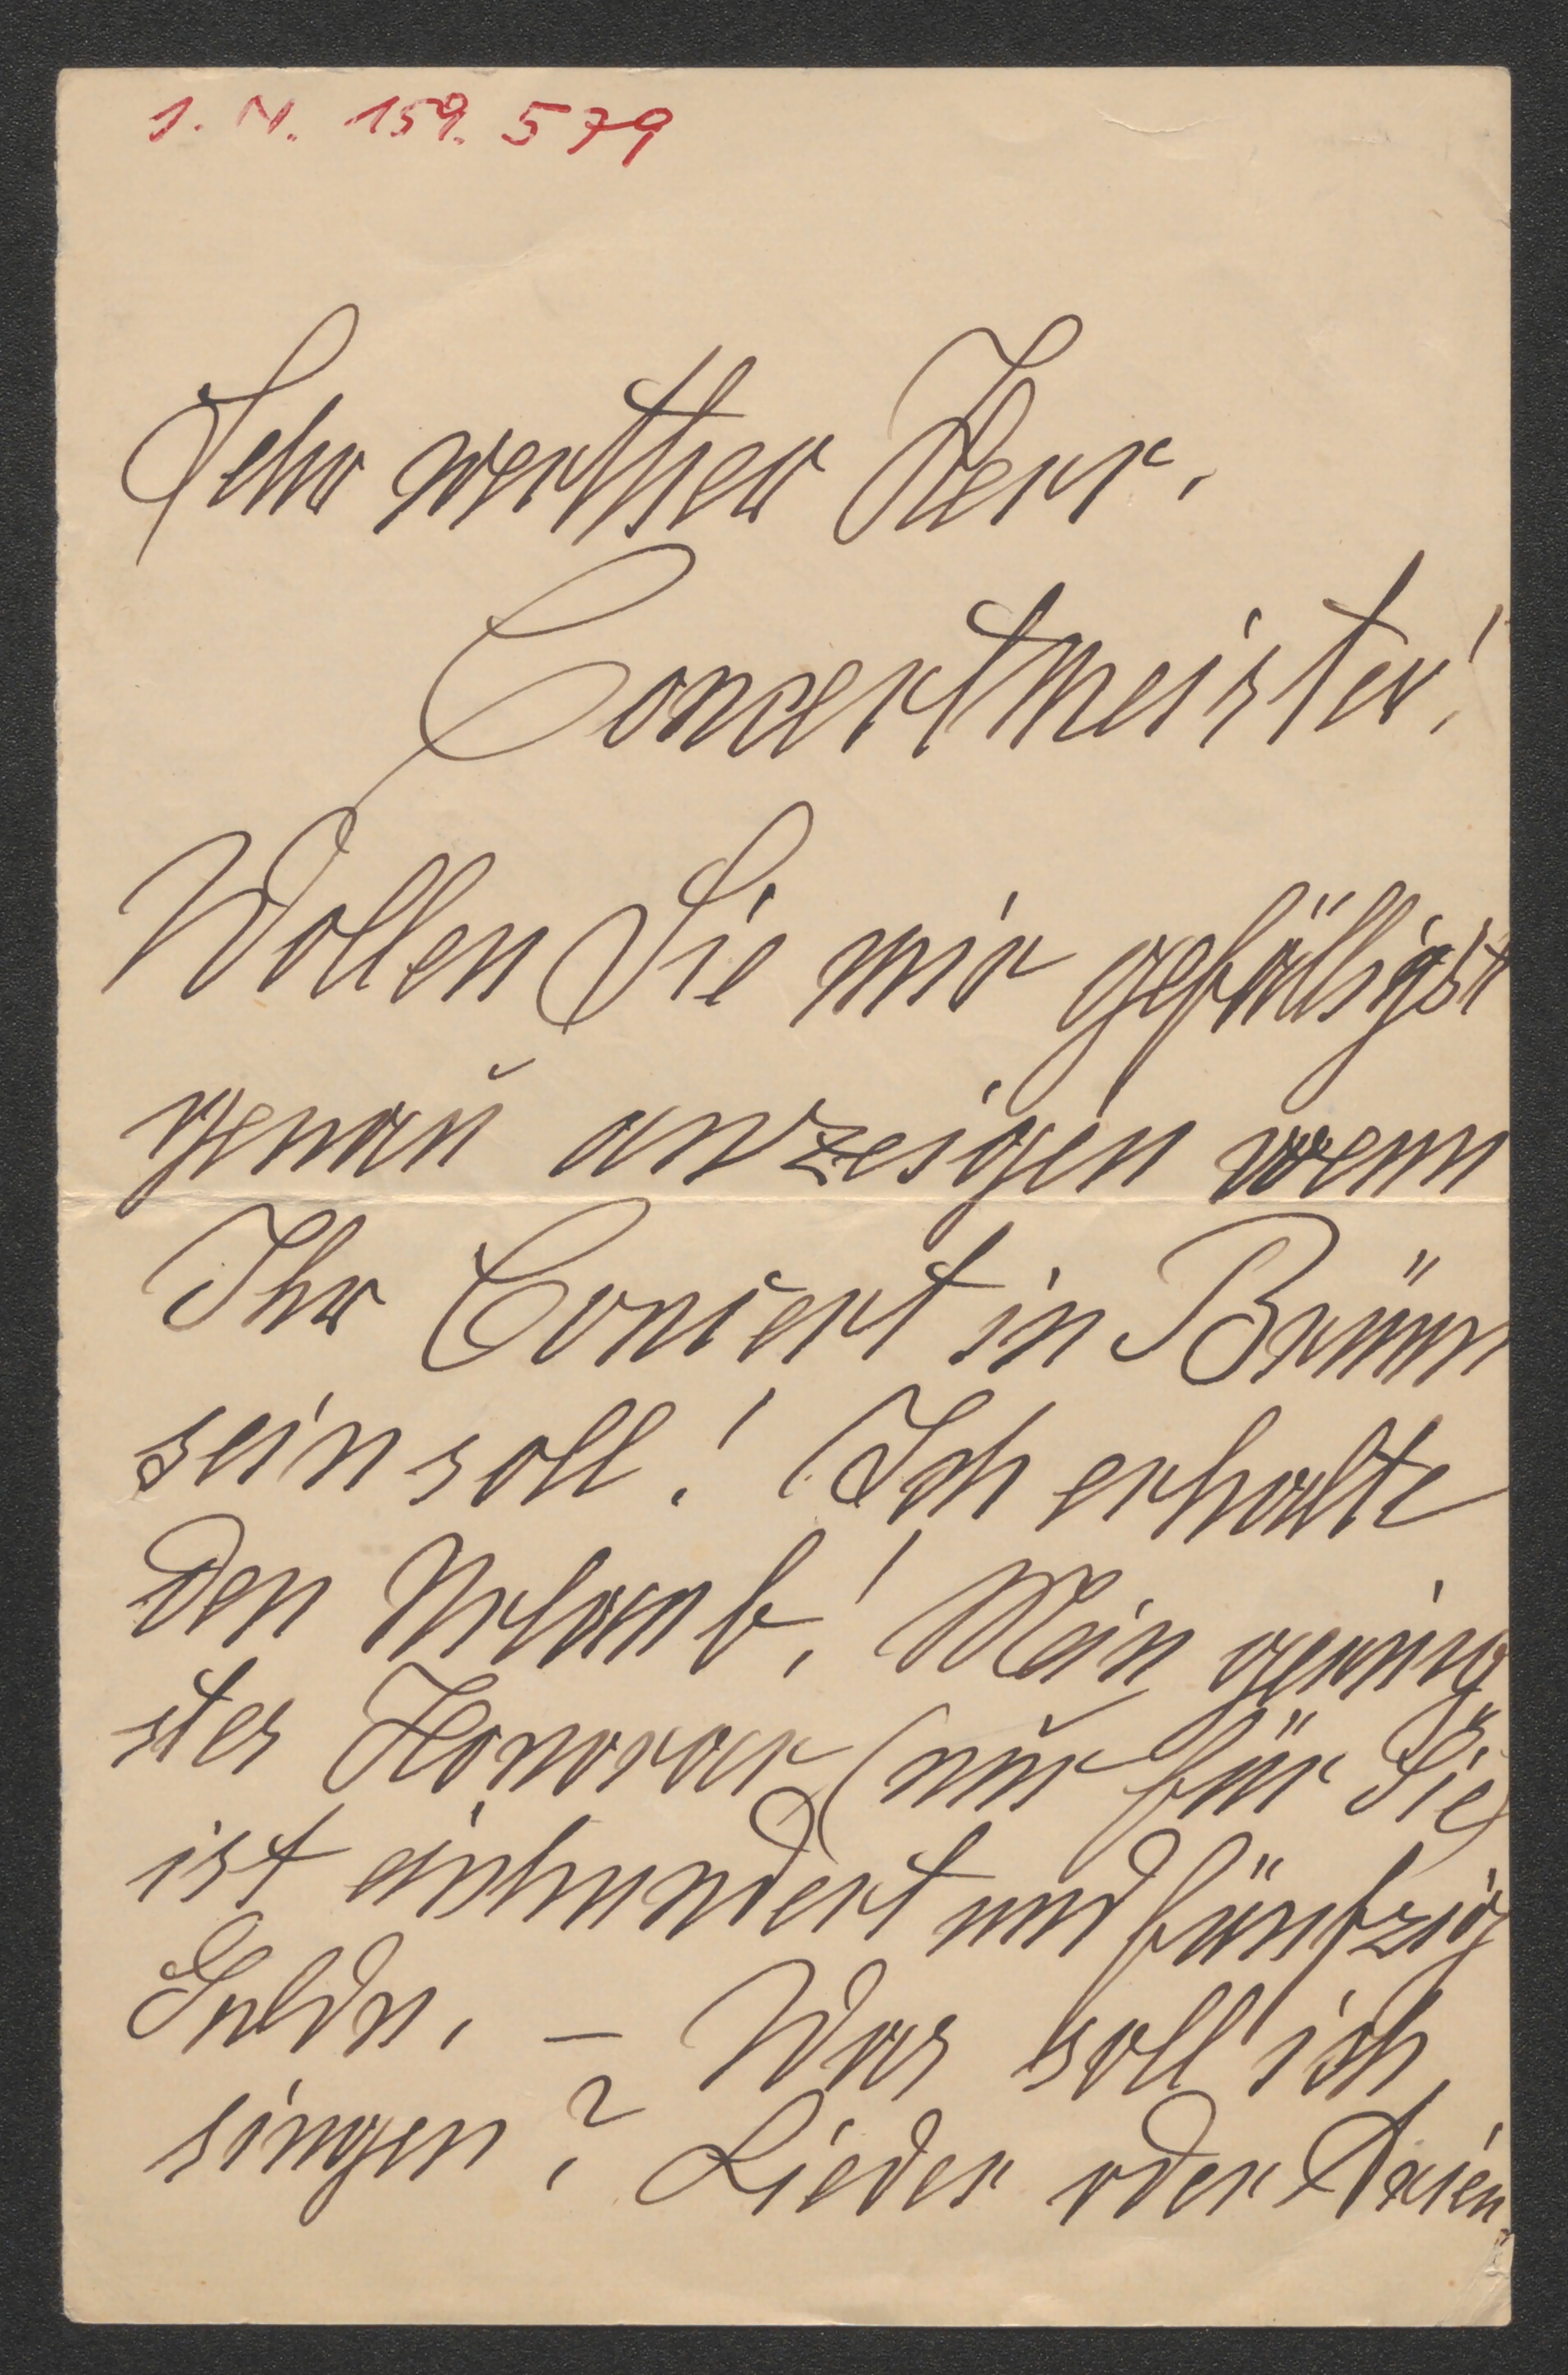 I. N. 159.579
Sehr werther Herr.
Concertmeister!
Wollen Sie mir gefälligst
genau anzeigen wenn
Ihr Concert in Brünn
sein soll! Ich erhalte
den Urlaub! Mein gering
stes Honorar (nur für Sie)
ist einhundert und fünfzig
Guldn. – Was soll ich
singen? Lieder oder Arien,